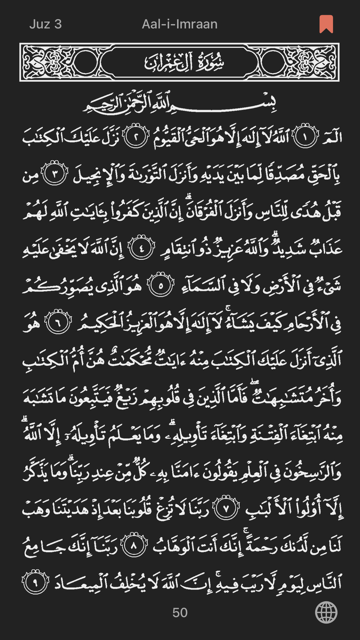 Juz 3
Aal-i-Imraan
سُورَةُ آلِ عِمۡرَانَ
بِسۡمِ ٱللَّهِ ٱلرَّحۡمَٰنِ ٱلرَّحِيمِ
الٓمٓ ١ ٱللَّهُ لَآ إِلَٰهَ إِلَّا هُوَ ٱلۡحَيُّ ٱلۡقَيُّومُ ٢ نَزَّلَ عَلَيۡكَ ٱلۡكِتَٰبَ
بِٱلۡحَقِّ مُصَدِّقٗا لِّمَا بَيۡنَ يَدَيۡهِ وَأَنزَلَ ٱلتَّوۡرَىٰةَ وَٱلۡإِنجِيلَ ٣ مِن
قَبۡلُ هُدٗى لِّلنَّاسِ وَأَنزَلَ ٱلۡفُرۡقَانَۗ إِنَّ ٱلَّذِينَ كَفَرُواْ بِـَٔايَٰتِ ٱللَّهِ لَهُمۡ
عَذَابٞ شَدِيدٞۗ وَٱللَّهُ عَزِيزٞ ذُو ٱنتِقَامٍ ٤ إِنَّ ٱللَّهَ لَا يَخۡفَىٰ عَلَيۡهِ
شَيۡءٞ فِي ٱلۡأَرۡضِ وَلَا فِي ٱلسَّمَآءِ ٥ هُوَ ٱلَّذِي يُصَوِّرُكُمۡ
فِي ٱلۡأَرۡحَامِ كَيۡفَ يَشَآءُۚ لَآ إِلَٰهَ إِلَّا هُوَ ٱلۡعَزِيزُ ٱلۡحَكِيمُ ٦ هُوَ
ٱلَّذِيٓ أَنزَلَ عَلَيۡكَ ٱلۡكِتَٰبَ مِنۡهُ ءَايَٰتٞ مُّحۡكَمَٰتٌ هُنَّ أُمُّ ٱلۡكِتَٰبِ
وَأُخَرُ مُتَشَٰبِهَٰتٞۖ فَأَمَّا ٱلَّذِينَ فِي قُلُوبِهِمۡ زَيۡغٞ فَيَتَّبِعُونَ مَا تَشَٰبَهَ
مِنۡهُ ٱبۡتِغَآءَ ٱلۡفِتۡنَةِ وَٱبۡتِغَآءَ تَأۡوِيلِهِۦۗ وَمَا يَعۡلَمُ تَأۡوِيلَهُۥٓ إِلَّا ٱللَّهُۗ
وَٱلرَّٰسِخُونَ فِي ٱلۡعِلۡمِ يَقُولُونَ ءَامَنَّا بِهِۦ كُلّٞ مِّنۡ عِندِ رَبِّنَاۗ وَمَا يَذَّكَّرُ
إِلَّآ أُوْلُواْ ٱلۡأَلۡبَٰبِ ٧ رَبَّنَا لَا تُزِغۡ قُلُوبَنَا بَعۡدَ إِذۡ هَدَيۡتَنَا وَهَبۡ
لَنَا مِن لَّدُنكَ رَحۡمَةًۚ إِنَّكَ أَنتَ ٱلۡوَهَّابُ ٨ رَبَّنَآ إِنَّكَ جَامِعُ
ٱلنَّاسِ لِيَوۡمٖ لَّا رَيۡبَ فِيهِۚ إِنَّ ٱللَّهَ لَا يُخۡلِفُ ٱلۡمِيعَادَ ٩
50